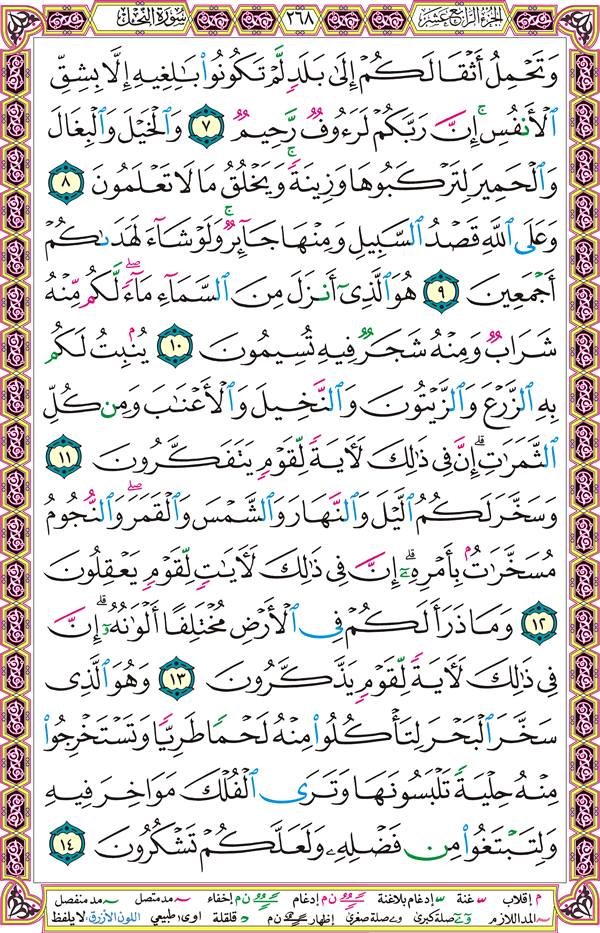 سورة النحل ٢٦٨ الجزء الرابع عشر
وَتَحْمِلُ أَثْقَالَكُمْ إِلَىٰ بَلَدٍ لَّمْ تَكُونُوا۟ بَـٰلِغِيهِ إِلَّا بِشِقِّ
ٱلْأَنفُسِ ۚ إِنَّ رَبَّكُمْ لَرَءُوفٌ رَّحِيمٌ ٧ وَٱلْخَيْلَ وَٱلْبِغَالَ
وَٱلْحَمِيرَ لِتَرْكَبُوهَا وَزِينَةً ۚ وَيَخْلُقُ مَا لَا تَعْلَمُونَ ٨
وَعَلَى ٱللَّهِ قَصْدُ ٱلسَّبِيلِ وَمِنْهَا جَآئِرٌ ۚ وَلَوْ شَآءَ لَهَدَىٰكُمْ
أَجْمَعِينَ ٩ هُوَ ٱلَّذِىٓ أَنزَلَ مِنَ ٱلسَّمَآءِ مَآءً ۖ لَّكُم مِّنْهُ
شَرَابٌ وَمِنْهُ شَجَرٌ فِيهِ تُسِيمُونَ ١٠ يُنۢبِتُ لَكُم
بِهِ ٱلزَّرْعَ وَٱلزَّيْتُونَ وَٱلنَّخِيلَ وَٱلْأَعْنَـٰبَ وَمِن كُلِّ
ٱلثَّمَرَٰتِ ۗ إِنَّ فِى ذَٰلِكَ لَـَٔايَةً لِّقَوْمٍ يَتَفَكَّرُونَ ١١
وَسَخَّرَ لَكُمُ ٱلَّيْلَ وَٱلنَّهَارَ وَٱلشَّمْسَ وَٱلْقَمَرَ ۖ وَٱلنُّجُومُ
مُسَخَّرَٰتٌۢ بِأَمْرِهِۦٓ ۗ إِنَّ فِى ذَٰلِكَ لَـَٔايَـٰتٍ لِّقَوْمٍ يَعْقِلُونَ
١٢ وَمَا ذَرَأَ لَكُمْ فِى ٱلْأَرْضِ مُخْتَلِفًا أَلْوَٰنُهُۥٓ ۗ إِنَّ
فِى ذَٰلِكَ لَـَٔايَةً لِّقَوْمٍ يَذَّكَّرُونَ ١٣ وَهُوَ ٱلَّذِى
سَخَّرَ ٱلْبَحْرَ لِتَأْكُلُوا۟ مِنْهُ لَحْمًا طَرِيًّا وَتَسْتَخْرِجُوا۟
مِنْهُ حِلْيَةً تَلْبَسُونَهَا وَتَرَى ٱلْفُلْكَ مَوَاخِرَ فِيهِ
وَلِتَبْتَغُوا۟ مِن فَضْلِهِۦ وَلَعَلَّكُمْ تَشْكُرُونَ ١٤
م إقلاب غنة إدغام بلاغنة ن م إدغام ن م إخفاء مد متصل مد منفصل
المد اللازم صلة كبرى صلة صغرى إظهار ن م قلقلة اوى: طبيعي اللون الأزرق: لا يلفظ